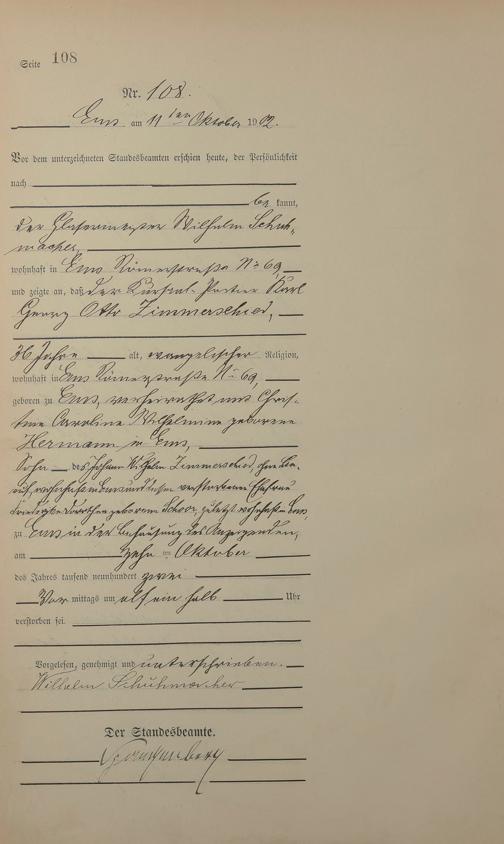 Seite 108
Nr. 108.
Ems am 11ten Oktober 1902.
Vor dem unterzeichneten Standesbeamten erschien heute, der Persönlichkeit
nach
be kannt,
der Glasermeister Wilhelm Schuh-
macher,
wohnhaft in Ems Römerstraße No 69,
und zeigte an, daß der Kursaal-Portier Karl
Georg Otto Zimmerschied,
36 Jahre alt, evangelischer Religion,
wohnhaft in Ems Römerstraße No 69,
geboren zu Ems, verheirathet mit Chris-
tine Caroline Wilhelmine geborene
Hermann in Ems,
Sohn des Johann Wilhelm Zimmerschied, ohne Be-
ruf, wohnhaft in Ems und dessen verstorbenen Ehefrau
Dorothea geborenen zuletzt wohnhaft in Ems,
zu Ems in der Behausung des Anzeigenden,
am Zehn ten Oktober
des Jahres tausend neunhundert zwei
Vor mittags um elf ein halb Uhr
verstorben sei.
Vorgelesen, genehmigt und unterschrieben.
Wilhelm Schuhmacher
Der Standesbeamte.